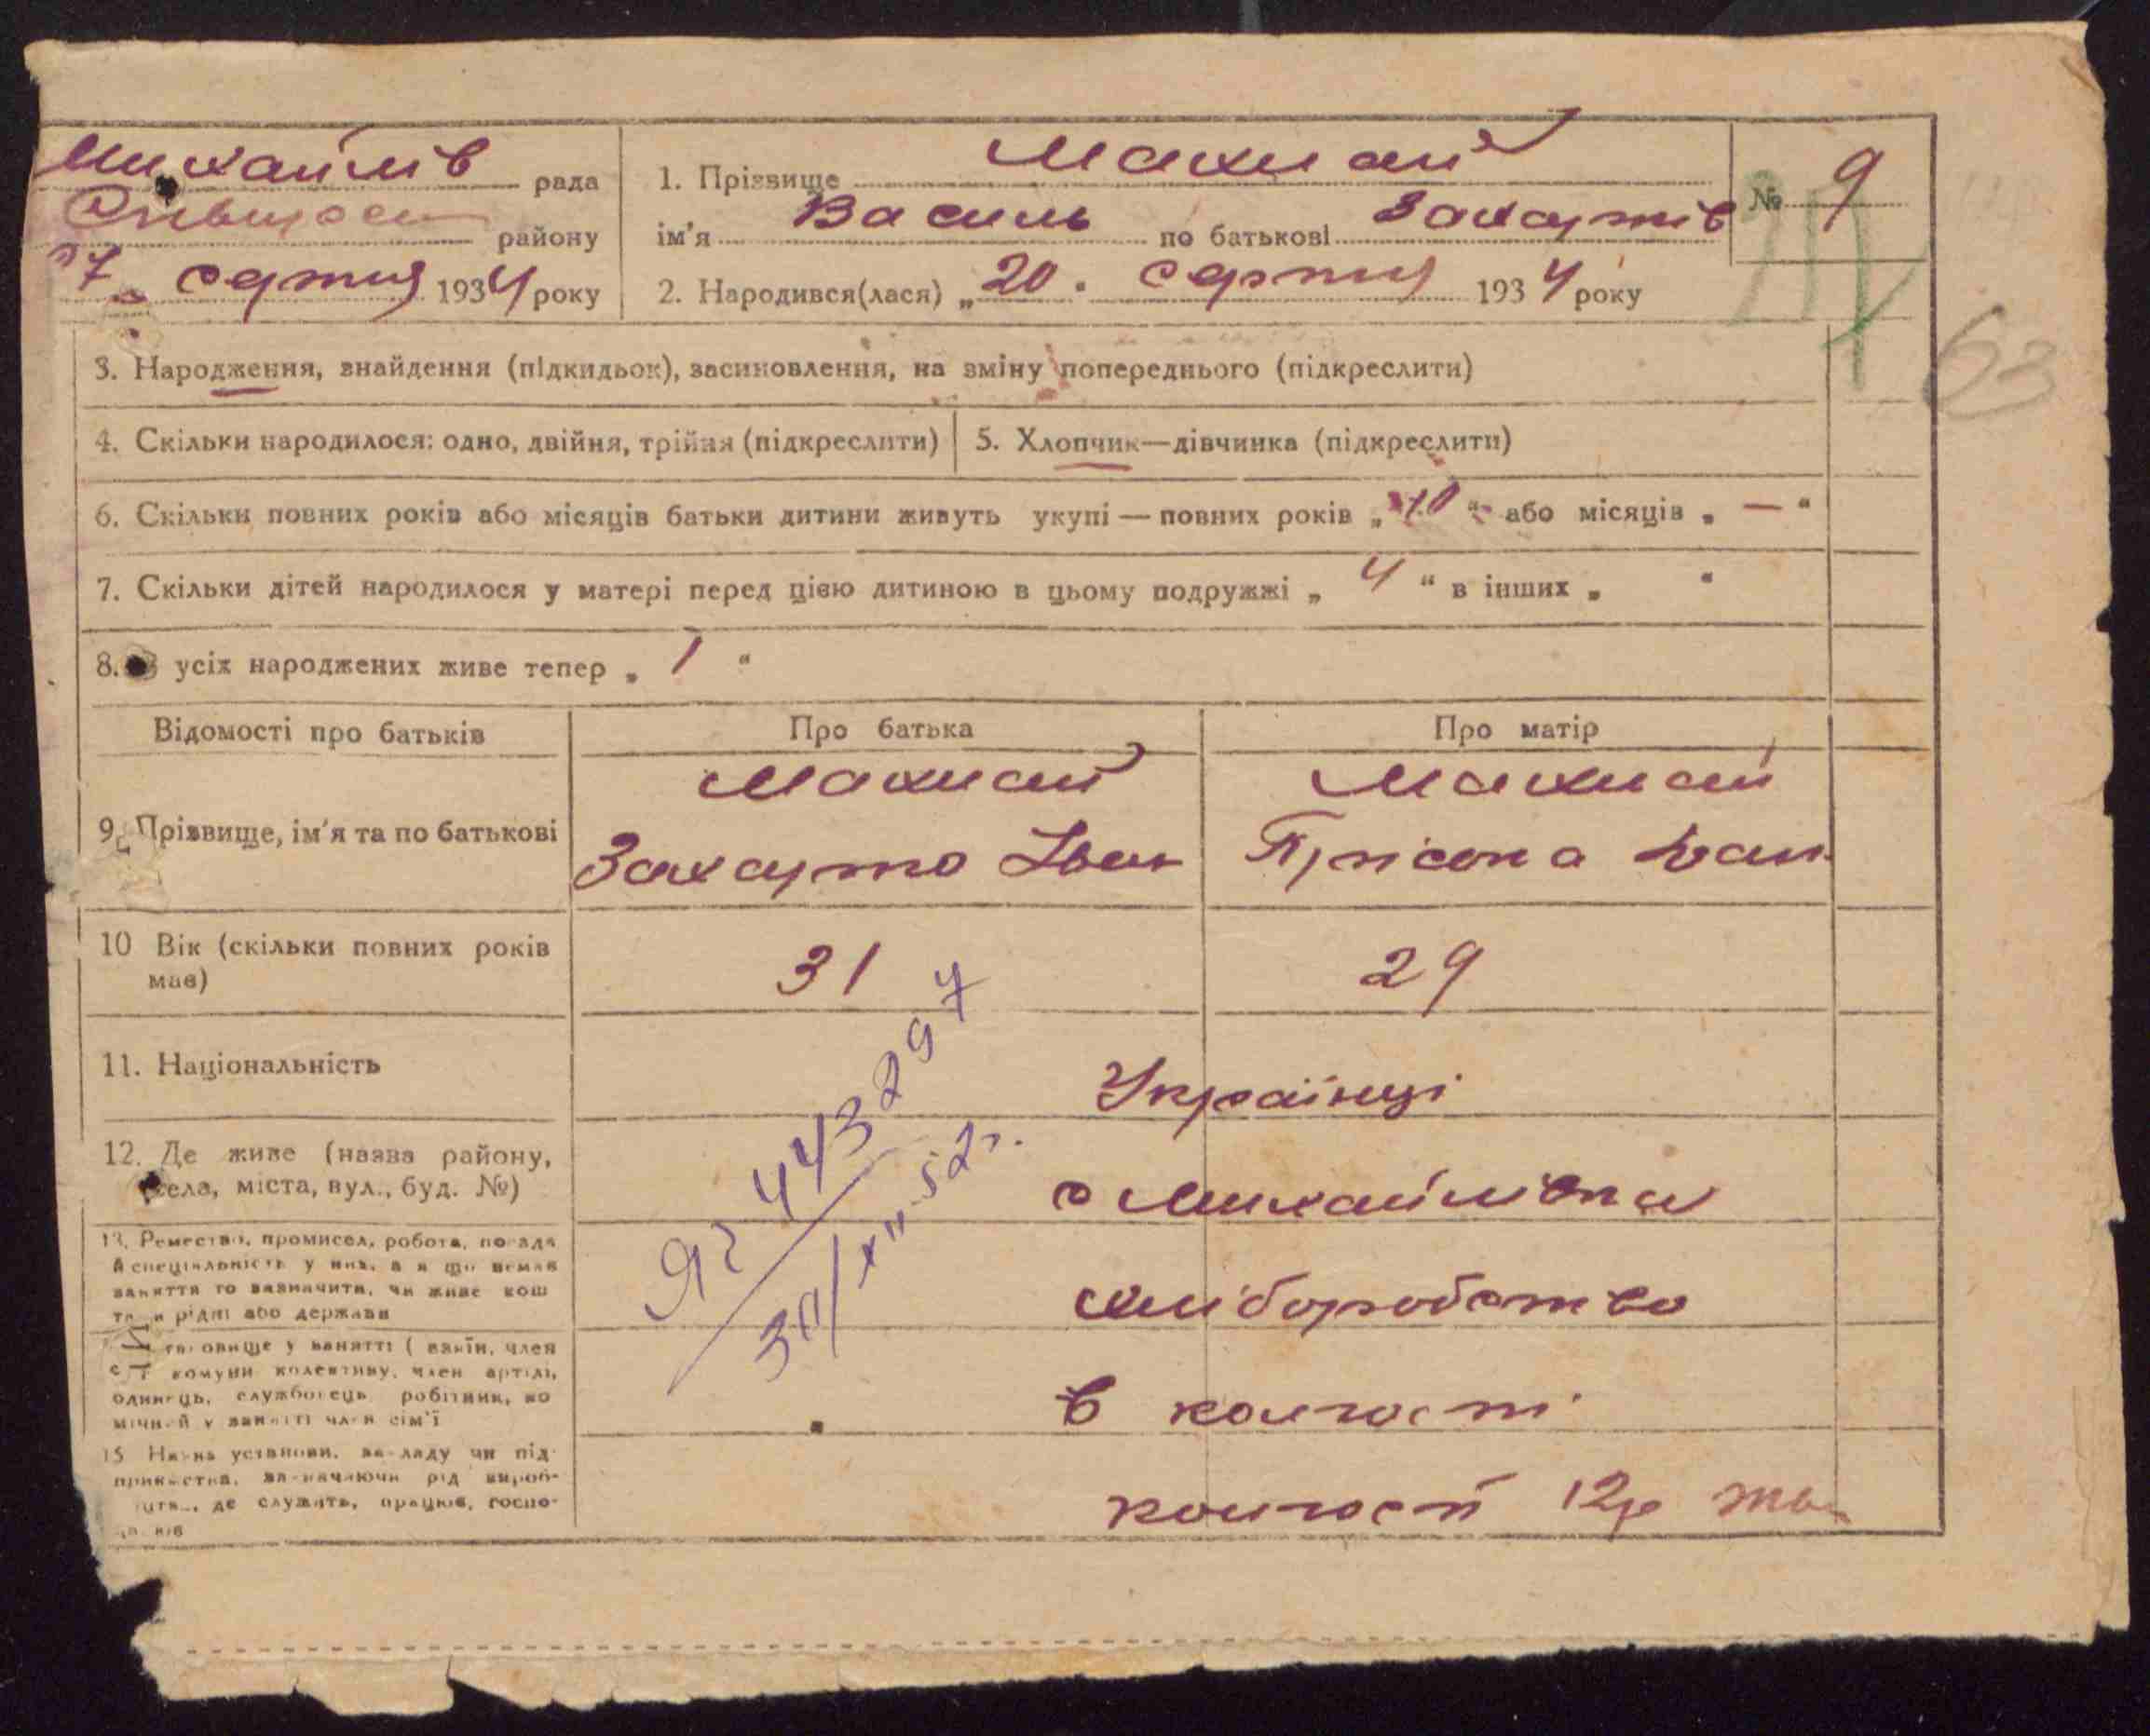 Михайлів рада
району
серпня 1934 року
1. Прізвище Махнай
ім'я Василь по батькові
№ 9
2. Народився(лася) „20" серпня 1934 року
63
3. Народження, знайдення (підкидьок), засиновлення, на зміну попереднього (підкреслити)
4. Скільки народилося: одно, двійня, трійня (підкреслити)
5. Хлопчик—дівчинка (підкреслити)
6. Скільки повних років або місяців батьки дитини живуть укупі — повних років „10" або місяців „ — "
7. Скільки дітей народилося у матері перед цією дитиною в цьому подружжі „ 4 " в інших „ "
8. усіх народжених живе тепер „ 1 "
Відомості про батьків
Про батька
Про матір
9. Прізвище, ім'я та по батькові
Махнай
Іван
Махнай
Іван
10 Вік (скільки повних років має)
31
29
11. Національність
Українці
12. Де живе (назва району, села, міста, вул., буд. №)
с Михайлівка
13. Ремество, промисел, робота, посада
й спеціяльність у них, а якщо немає
заняття то зазначити, чи живе кош
рідні або держави
хліборобство
у занятті ( член
комуни колективу, член артілі,
одинець, службовець робітник, по
член сім'ї
в колгоспі
15 Назва установи, закладу чи під
зазначаючи рід вироб-
де служить, працює, госпо-
колгосп
443297
52 г.